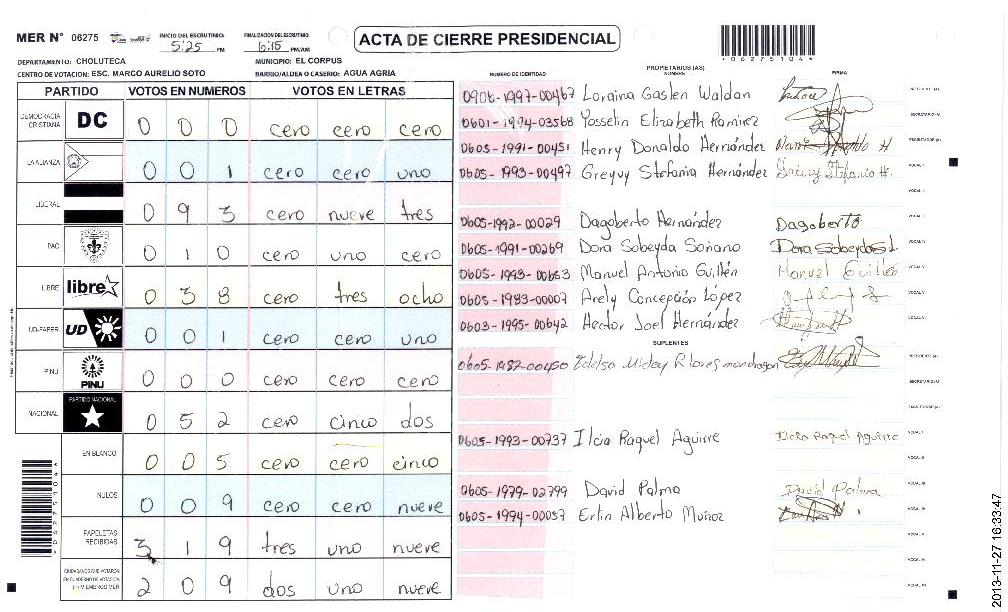 MER N° 06275 INICIO DEL ESCRUTINIO: 5:25 PM FINALIZACION DEL ESCRUTINIO: 6:15 PM/AM
ACTA DE CIERRE PRESIDENCIAL
*062751044*
DEPARTAMENTO: CHOLUTECA MUNICIPIO: EL CORPUS
CENTRO DE VOTACION: ESC. MARCO AURELIO SOTO BARRIO/ALDEA O CASERIO: AGUA AGRIA
PARTIDO VOTOS EN NUMEROS VOTOS EN LETRAS
DEMOCRACIA CRISTIANA DC 0 0 0 cero cero cero
LA ALIANZA 0 0 1 cero cero uno
LIBERAL 0 9 3 cero nueve tres
PAC 0 1 0 cero uno cero
LIBRE libre 0 3 8 cero tres ocho
UD-FAPER UD 0 0 1 cero cero uno
PINU PINU 0 0 0 cero cero cero
NACIONAL PARTIDO NACIONAL 0 5 2 cero cinco dos
EN BLANCO 0 0 5 cero cero cinco
NULOS 0 0 9 cero cero nueve
PAPELETAS RECIBIDAS 3 1 9 tres uno nueve
CIUDADANOS QUE VOTARON EN CUADERNO DE VOTACION (+) MIEMBROS MER 2 0 9 dos uno nueve
PROPIETARIOS (AS)
NUMERO DE IDENTIDAD NOMBRE FIRMA
0906-1997-00467 Loraina Gaslen Waldan PRESIDENTE (A)
0601-1994-03568 Yosselin Elizabeth Ramirez SECRETARIO (A)
0605-1991-00451 Henry Donaldo Hernández ESCRUTADOR (A)
0605-1993-00497 Greyvy Stefania Hernández VOCAL I
VOCAL II
0605-1992-00029 Dagoberto Hernández Dagoberto VOCAL III
0605-1991-00269 Dora Sobeyda Soriano VOCAL IV
0605-1993-00653 Manuel Antonio Guillén Manuel Guillen VOCAL V
0605-1983-00007 Arely Concepción López VOCAL VI
0603-1995-00642 Hector Joel Hernández
SUPLENTES
0605-1982-00450 PRESIDENTE (A)
SECRETARIO (A)
ESCRUTADOR (A)
0605-1993-00737 Ilcia Raquel Aguirre Ilcia Raquel Aguirre VOCAL I
VOCAL II
0605-1979-02799 David Palma David Palma VOCAL III
0605-1994-00057 Erlin Alberto Muñoz VOCAL IV
VOCAL V
VOCAL VI
VOCAL VII
2013-11-27 16:33:47